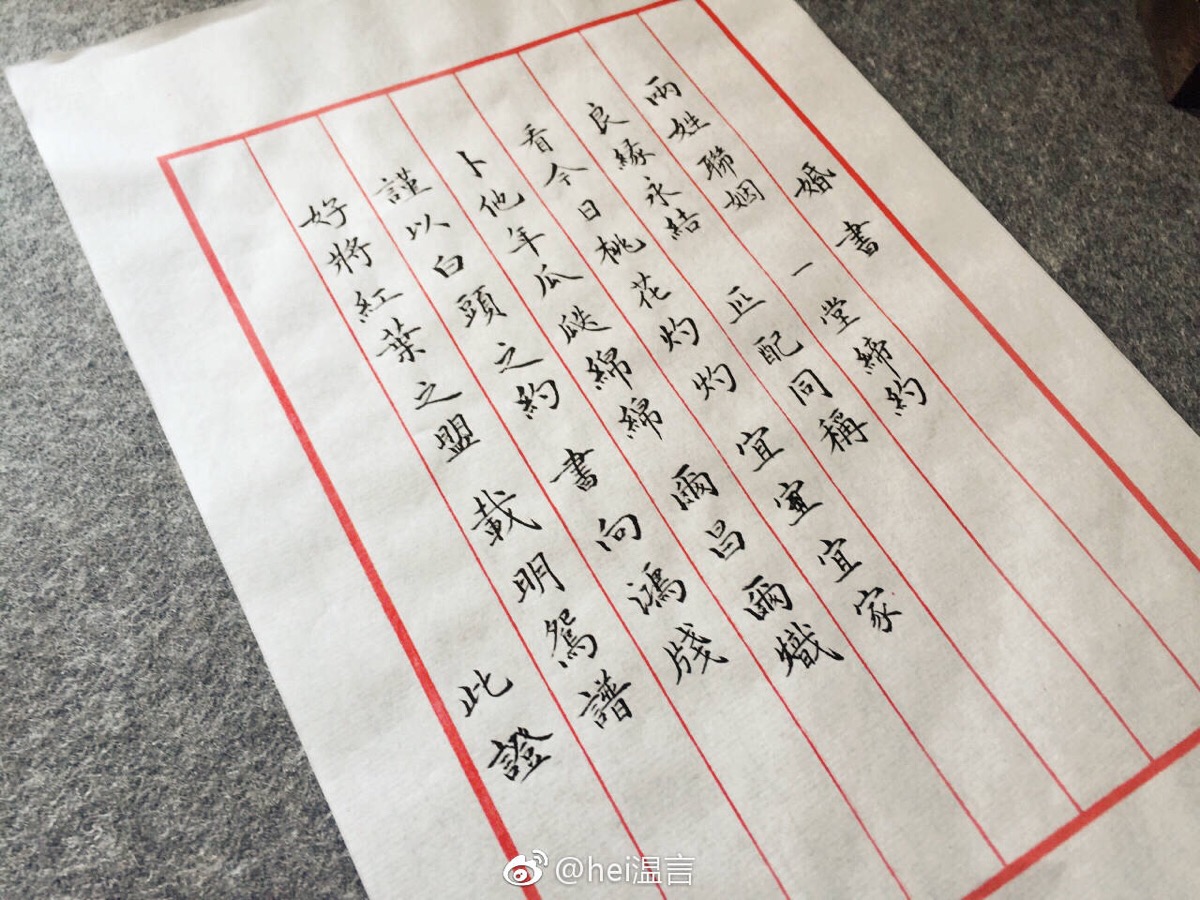 婚書
兩姓聯姻 一堂締約
良緣永結 匹配同稱
看今日桃花灼灼 宜室宜家
卜他年瓜瓞綿綿 爾昌爾熾
謹以白頭之約 書向鴻牋
好將紅葉之盟 載明鴛譜
此證
@hei温言